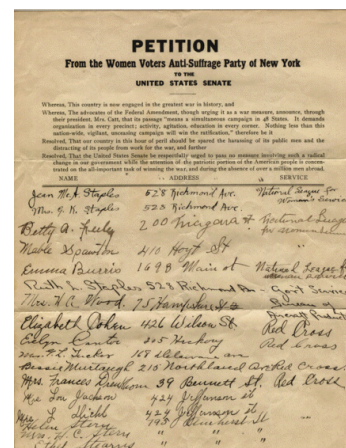 PETITION
From the Women Voters Anti-Suffrage Party of New York
TO THE
UNITED STATES SENATE
Whereas, This country is now engaged in the greatest war in history, and
Whereas, The advocates of the Federal Amendment, though urging it as a war measure, announce, through
their president, Mrs. Catt, that its passage "means a simultaneous campaign in 48 States. It demands
organization in every precinct; activity, agitation, education in every corner. Nothing less than this
nation-wide, vigilant, unceasing campaign will win the ratification," therefore be it
Resolved, That our country in this hour of peril should be spared the harassing of its public men and the
distracting of its people from work for the war, and further
Resolved, That the United States Senate be respectfully urged to pass no measure involving such a radical
change in our government while the attention of the patriotic portion of the American people is concen-
trated on the all-important task of winning the war, and during the absence of over a million men abroad.
NAME ADDRESS SERVICE
Jean McA. Staples 528 Richmond Ave. National League for
Woman's Service
Mrs. Staples 528 Richmond Ave.
Betty A. 200 Niagara St National League
for
Mable 410 Hoyt St
Emma Burris 1698 Main st National League for
Ruth L. Staples 528 Richmond Govt Service
Mrs. H.C. Wood. 75 Hampshire St Bureau of
Elizabeth Cohen 426 Wilson St Red Cross
Evelyn 205 Hickory Red Cross
Mrs. Tucker 168 Delaware av
Bessie Murtaugh 215 Northland Red Cross.
Mrs. Frances 39 Bennett St. Red Cross
Mrs Lou Jackson 424 Jefferson St
Mrs. L. 424 Jefferson St
Helen Stern 195 Elmhurst St
Mrs. H.C. Stern " " "
Ethel Stearns " " "